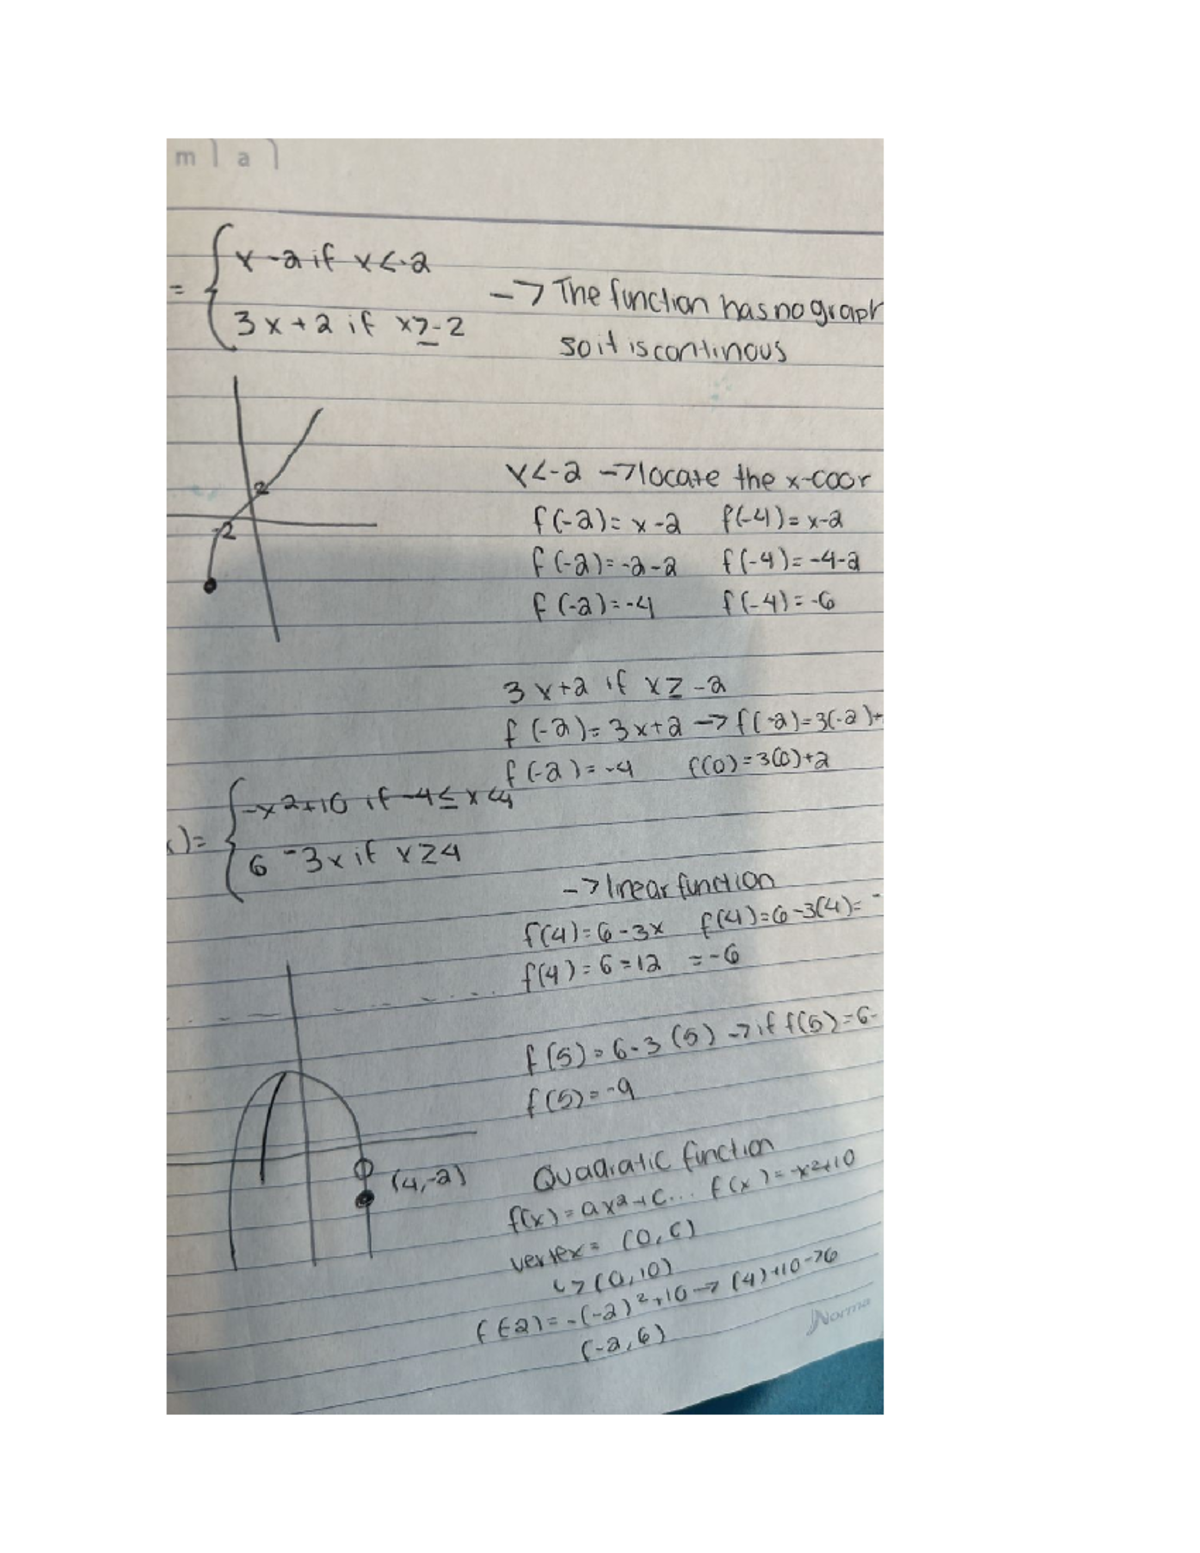 m a
= { x-2 if x<-2
3x+2 if x≥-2
-> The function has no graph
so it is continous
2
-2
x<-2 -> locate the x-coor
f(-2)= x-2 f(-4)= x-2
f(-2)=-2-2 f(-4)=-4-2
f(-2)=-4 f(-4)=-6
3x+2 if x≥-2
f(-2)=3x+2 -> f(-2)=3(-2)+
f(-2)=-4 f(0)=3(0)+2
-x2+10 if -4≤x<4
)= {
6-3x if x≥4
-> linear function
f(4)=6-3x f(4)=6-3(4)=-
f(4)=6=12 =-6
f(5)=6-3(5) -> if f(5)=6-
f(5)=-9
(4,-2)
Quadratic function
f(x)=ax2+c... f(x)=-x2+10
vertex= (0,c)
↳>(0,10)
f(-2)=-(-2)2+10-> (4)+10->6
(-2,6)
Norma